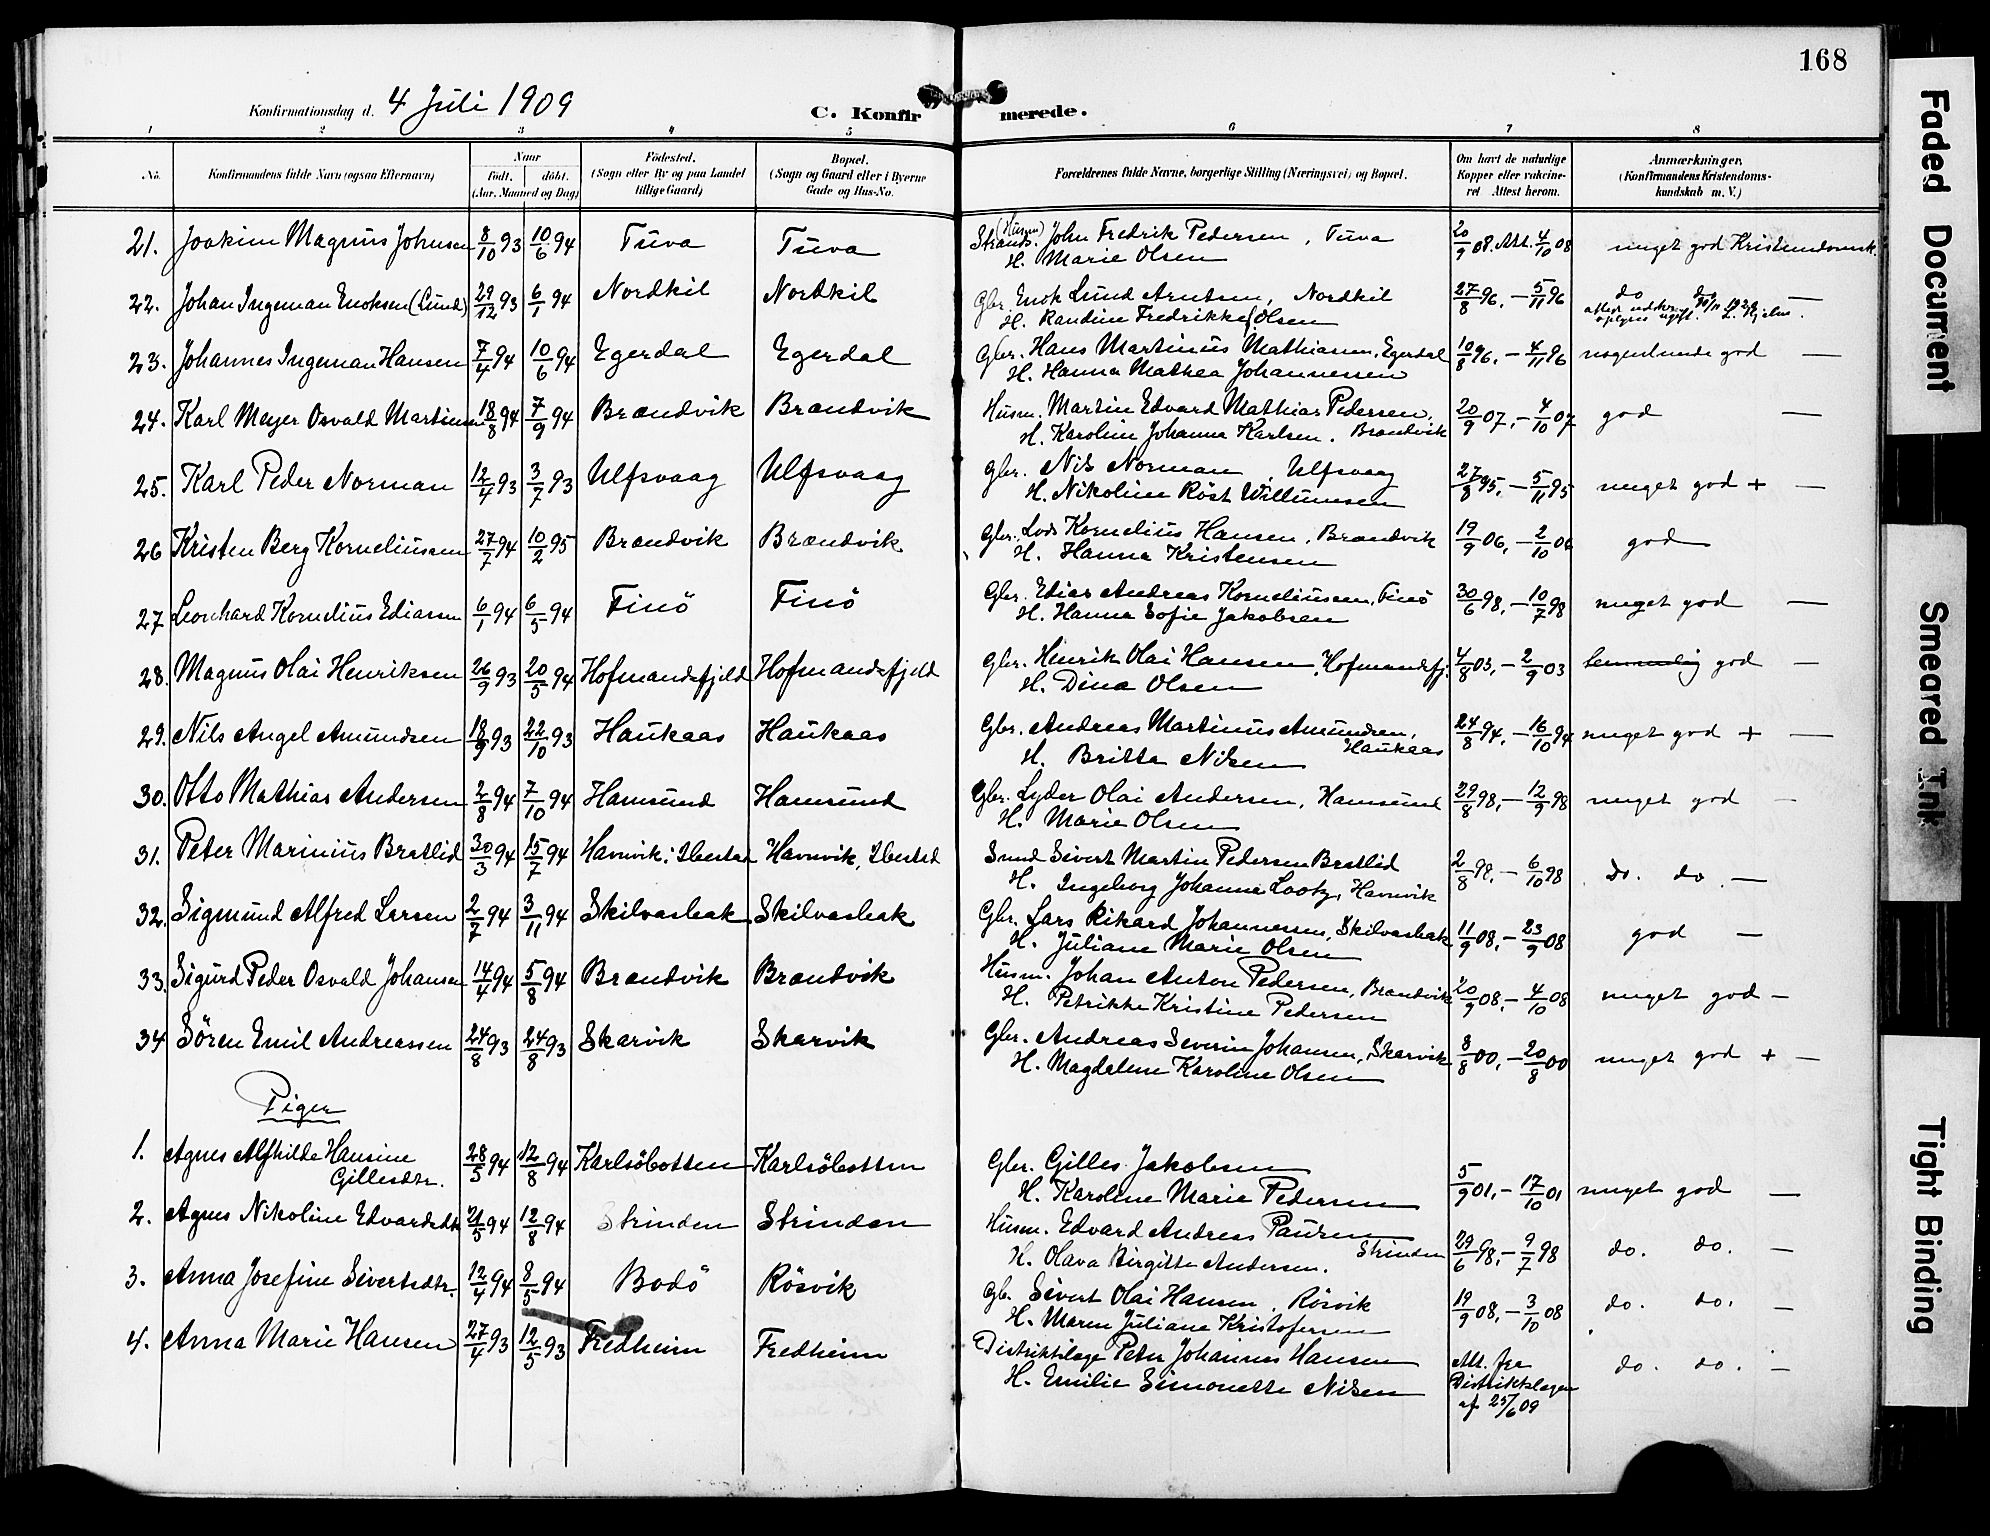 168
Konfirmationsdag d. 4 Juli 1909
C. Konfirmerede.
1 2 3 4 5 6 7 8
No. Konfirmandens fulde Navn (ogsaa Efternavn) Naar født. døbt. (Aar, Maaned og Dag) Fødested. (Sogn eller By og paa Landet tillige Gaard) Bopæl. (Sogn og Gaard eller i Byerne Gade og Hus-No. Forældrenes fulde Navne, borgerlige Stilling (Næringsvei) og Bopæl. Om havt de naturlige Kopper eller vaccineret Attest herom. Anmærkninger, (Konfirmandens Kristendomskundskab m. V.)
21. Joakim Magnus Johnsen 8/10 93 10/6 94 Tuva Tuva Strands. (Husm) John Fredrik Pedersen, Tuva 20/9 08. Att. 4/10 08 meget god Kristendomsk.
H. Marie Olsen
22. Johan Ingeman Enoksen (Lund) 29/12 93 6/1 94 Nordkil Nordkil Gbr. Enok Lund Arntsen, Nordkil 27/8 96. – 5/11 96 do do —
H. Randine Fredrikke Olsen
23. Johannes Ingeman Hansen 7/4 94 10/6 94 Egerdal Egerdal Gbr. Hans Martinus Mathiassen, Egerdal 10/8 96. – 4/11 96 nogenlunde god —
H. Hanna Mathea Johannessen
24. Karl Meyer Osvald Martinsen 18/8 94 7/9 94 Brændvik Brændvik Husm. Martin Edvard Mathias Pedersen, 20/9 07. – 4/10 07 god —
H. Karoline Johanna Karlsen. Brændvik
25. Karl Peder Norman 12/4 93 3/7 93 Ulfsvaag Ulfsvaag Gbr. Nils Norman Ulfsvaag 27/8 95. – 5/11 95 meget god + —
H. Nikoline Röst Willumsen
26 Kristen Berg Korneliussen 27/7 94 10/2 95 Brændvik Brændvik Gbr. Lods Kornelius Hansen, Brændvik 19/9 06. – 2/10 06 god
H. Hanna Kristensen
27 Leonhard Kornelius Ediassen 6/1 94 6/5 94 Finö Finö Gbr. Edias Andreas Korneliussen, Finö 30/6 98. – 10/7 98 meget god —
H. Hanna Sofie Jakobsen
28. Magnus Olai Henriksen 26/9 93 20/5 94 Hofmandsfjeld Hofmandsfjeld Gbr. Henrik Olai Hansen, Hofmandsfj. 4/8 03. – 2/9 03 temmelig god —
H. Dina Olsen
29. Nils Angel Amundsen 18/9 93 22/10 93 Haukaas Haukaas Gbr. Andreas Martinus Amundsen, Haukaas 24/8 94. – 16/10 94 meget god + —
H. Britta Nilsen
30. Otto Mathias Andersen 2/8 94 7/10 94 Hamsund Hamsund Gbr. Lyder Olai Andersen, Hamsund 29/8 98. – 12/9 98 meget god –
H. Marie Olsen
31. Peter Marinius Bratlid 30/3 94 15/7 94 Havnvik, Ibestad Havnvik, Ibestad Smed Sivert Martin Pedersen Bratlid 2/8 98. – 6/10 98 do. do. —
H. Ingeborg Johanna Lootz, Havnvik
32. Sigmund Alfred Larsen 2/7 94 3/11 94 Skilvasbak Skilvasbak Gbr. Lars Rikard Johannessen, Skilvasbak 11/9 08. – 23/9 08 god —
H. Juliane Marie Olsen
33. Sigurd Peder Osvald Johansen 14/4 94 5/8 94 Brændvik Brændvik Husm. Johan Anton Pedersen, Brændvik 20/9 08. – 4/10 08 meget god –
H. Petrikke Kristine Pedersen
34 Sören Emil Andreassen 24/8 93 24/8 93 Skarvik Skarvik Gbr. Andreas Severin Johansen, Skarvik 8/8 00. – 20/8 00 meget god + –
H. Magdelene Karoline Olsen
Piger
1. Agnes Alfhilde Hansine Gillesdtr. 28/5 94 12/8 94 Karlsöbotten Karlsöbotten Gbr. Gilles Jakobsen 5/9 01. – 17/10 01 meget god —
H. Karoline Marie Pedersen
2. Agnes Nikoline Edvardsdtr 21/5 94 12/8 94 Strinden Strinden Husm. Edvard Andreas Paulsen Strinden 29/6 98. – 9/7 98 do. do. —
H. Olava Birgitte Andersen.
3. Anna Josefine Sivertsdtr. 12/4 94 8/5 94 Bodö Rösvik Gb. Sivert Olai Hansen, Rösvik 19/9 08. – 3/10 08 do. do. —
H. Maren Juliane Kristofersen
4. Anna Marie Hansen 27/4 93 12/5 93 Fredheim Fredheim Distriktslæge Peter Johannes Hansen Att. fra Distriktslægen af 25/6 09 do. do. —
H. Emilie Simonette Nilsen
Faded Document
Smeared Ink
Tight Binding